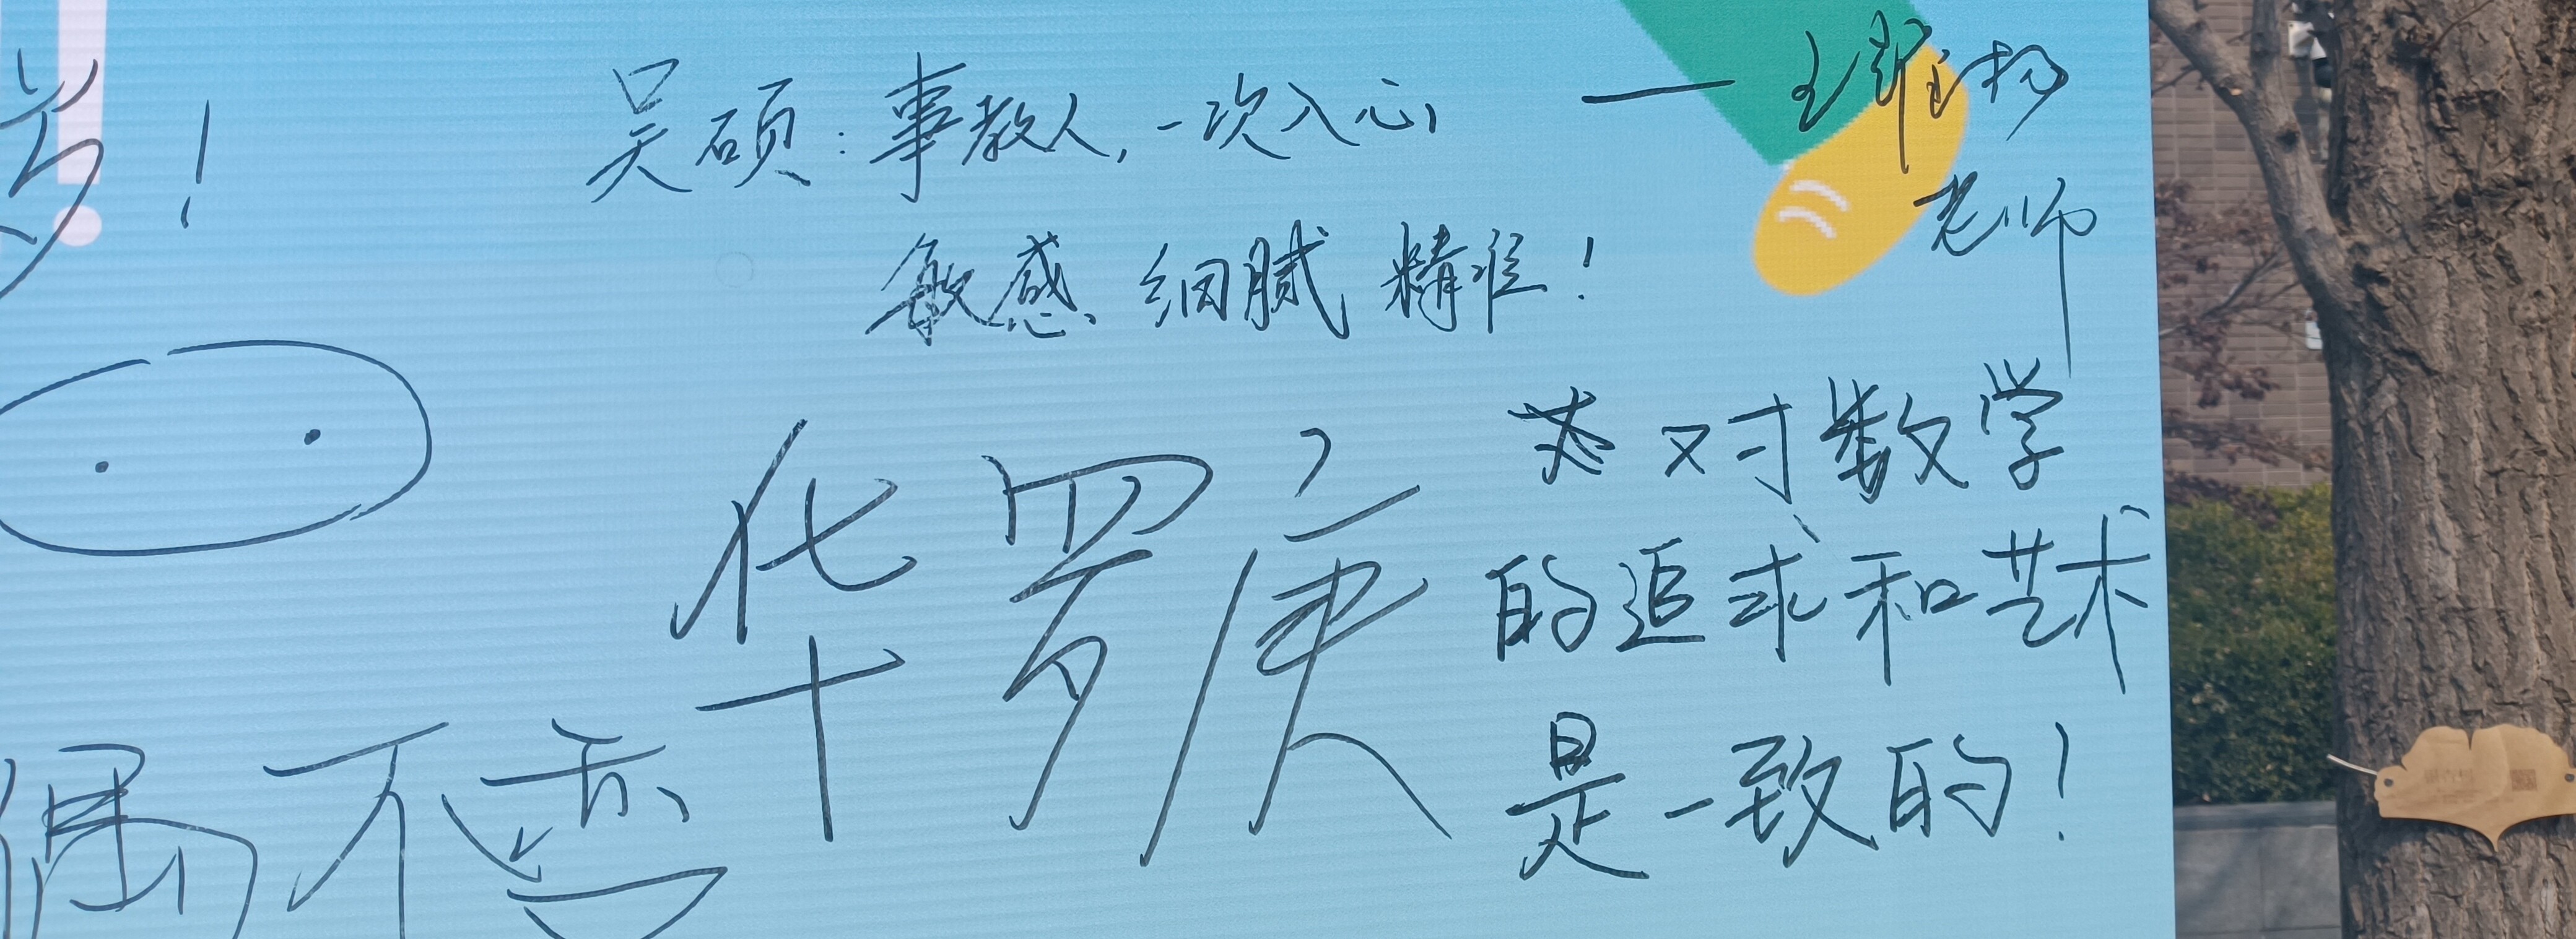 吴硕：事教人，一次入心 —王雅杨
老师
敏感 细腻 精准！
华罗庚
对数学
的追求和艺术
是一致的！
偶不变
！